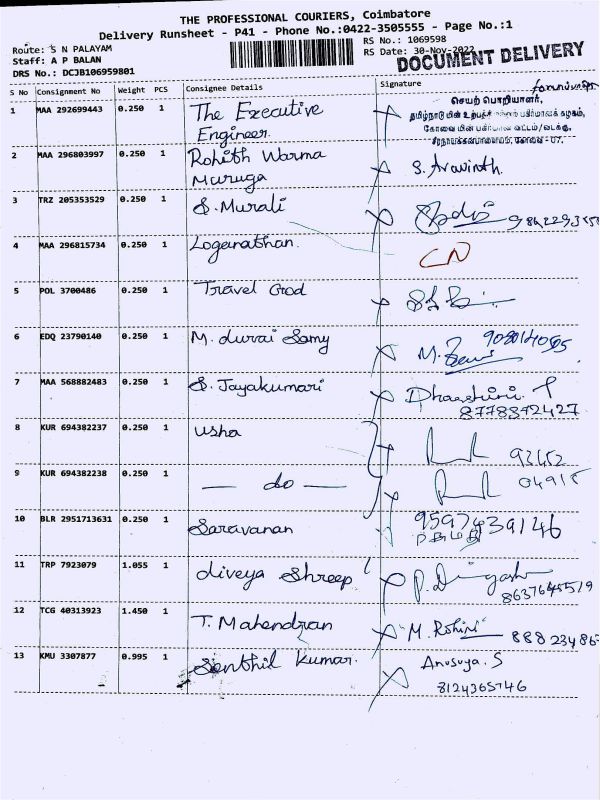 THE PROFESSIONAL COURIERS, Coimbatore
Delivery Runsheet - P41 - Phone No.:0422-3505555 - Page No.:1
Route: S N PALAYAM
RS No.: 1069598
Staff: A P BALAN
RS Date: 30-Nov-2022
DRS No.: DCJB106959801
DOCUMENT DELIVERY
S No Consignment No Weight PCS Consignee Details Signature
1 MAA 292699443 0.250 1 The Executive
Engineer
செயற் பொறியாளர்,
2 MAA 296803997 0.250 1 Rohith Warma
Maruga
S. Aravinth.
3 TRZ 205353529 0.250 1 S. Murali
4 MAA 296815734 0.250 1 Loganathan. CN
5 POL 3700486 0.250 1 Travel God
6 EDQ 23790140 0.250 1 M. durai Samy
7 MAA 568882483 0.250 1 S. Jayakumari
8778372427
8 KUR 694382237 0.250 1 usha
93452
9 KUR 694382238 0.250 1 — do —
04915
10 BLR 2951713631 0.250 1 Saravanan
9597439146
11 TRP 7923079 1.055 1 diveya Shreep
8637645519
12 TCG 40313923 1.450 1 T. Mahendran "M. Rohini"
13 KMU 3307877 0.995 1 Senthil Kumar. Anusuya. S
8124365746